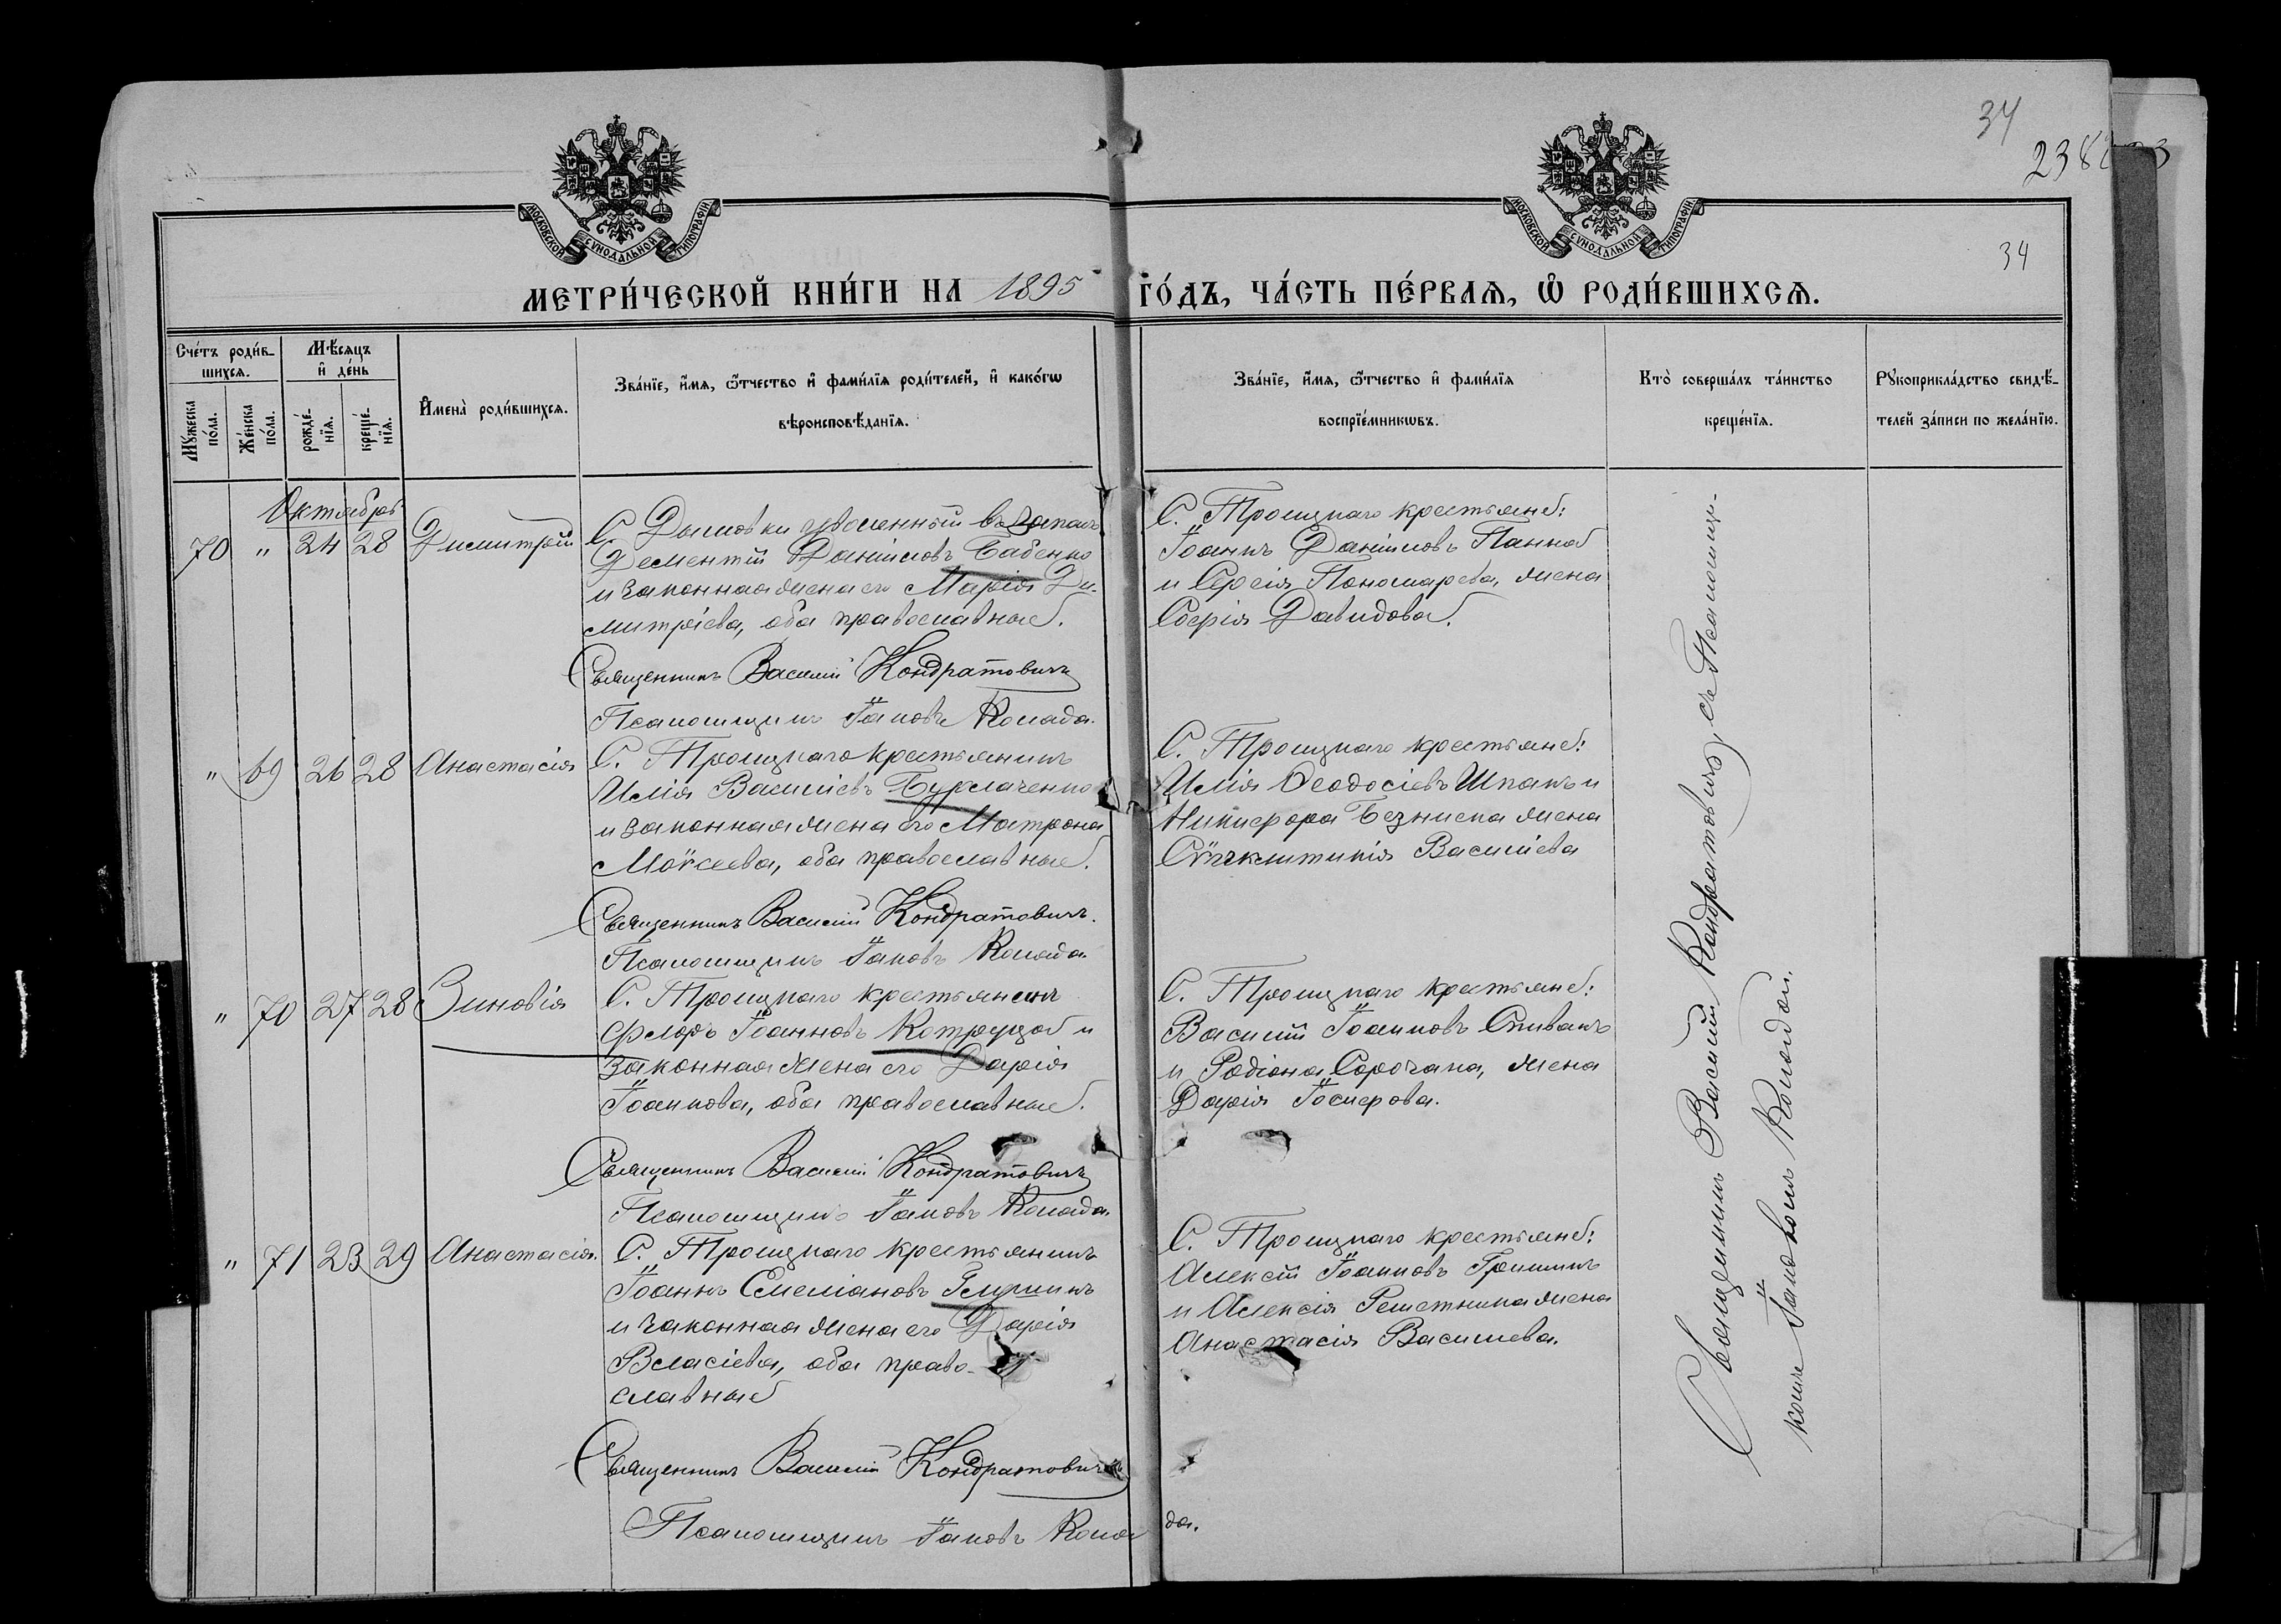 34
238
34
МОСКОВСКОЙ СѴНОДАЛЬНОЙ ТИПОГРАФІИ
МОСКОВСКОЙ СѴНОДАЛЬНОЙ ТИПОГРАФІИ
МЕТРИ́ЧЕСКОЙ КНИ́ГИ НА 1895 ГО́ДЪ, ЧА́СТЬ ПЕ́РВАѦ, Ѡ҆ РОДИ́ВШИХСѦ.
Сче́тъ роди́в-
шихсѧ.
Мꙋ́жеска по́ла.
Же́нска по́ла.
Мѣ́сѧцъ
и҆ де́нь
рожде́-нїѧ.
креще́-нїѧ.
И҆мена̀ роди́вшихсѧ.
Зва́нїе, и҆́мѧ, ѻ҆́тчество и҆ фами́лїѧ роди́телей, и҆ како́гѡ
вѣроисповѣ́данїѧ.
Зва́нїе, и҆́мѧ, ѻ҆́тчество и҆ фами́лїѧ
воспрїе́мникѡвъ.
Кто̀ соверша́лъ та́инство
креще́нїѧ.
Рꙋкоприкла́дство свидѣ́-
телей за́писи по жела́нїю.
Октябрь
70 " 24 28 Димитрій
С. Дымовки уволенный въ запасъ
Дементій Даніиловъ Бабенко
и законная жена его Марія Ди-
митріева, оба православные.
Священникъ Василій Кондратовичъ
Псаломщикъ Іаковъ Колада.
С. Троицкаго крестьяне:
Іоаннъ Даніиловъ Панка
и Сергія Пономарева, жена
Давидова.
" 69 26 28 Анастасія
С. Троицкаго крестьянинъ
Илія Василіевъ Бурлаченко
и законная жена его Матрона
Моѵсеева, оба православные.
Священникъ Василій Кондратовичъ.
Псаломщикъ Іаковъ Колада.
С. Троицкаго крестьяне:
Илія Ѳеодосіевъ Шпакъ и
Никифора жена
Сѵнклитикія Василіева
" 70 27 28 Зиновія
С. Троицкаго крестьянинъ
Флоръ Іоанновъ Котруца и
законная жена его Дарія
Іоаннова, оба православные.
Священникъ Василій Кондратовичъ
Псаломщикъ Іаковъ Колада.
С. Троицкаго крестьяне:
Василій Іоанновъ Спивакъ
и Родіона Сорочана, жена
Дарія Іосифова.
" 71 23 29 Анастасія.
С. Троицкаго крестьянинъ
Іоаннъ Емеліановъ
и законная жена его Дарія
Власіева, оба право-
славные
Священникъ Василій Кондратовичъ
Псаломщикъ Іаковъ Колада.
С. Троицкаго крестьяне:
Алексій Іоанновъ Гришинъ
и Алексія Решетника жена
Анастасія Василиева.
Священникъ Василій Кондратовичъ, съ Псаломщи-
комъ Іаковомъ Коладой.